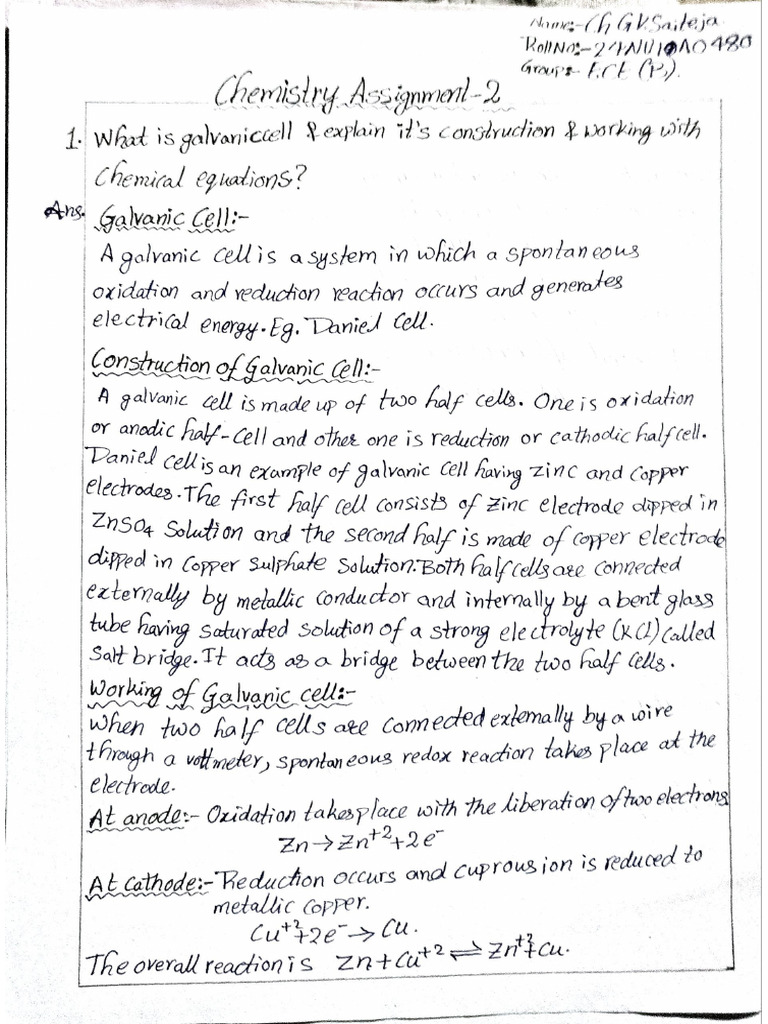 Name:- Ch G V Saiteja
Roll No:-
Group:- E.C.E
Chemistry Assignment-2
1. What is galvanic cell & explain it's construction & working with
Chemical equations?
Ans. Galvanic Cell:-
A galvanic cell is a system in which a spontaneous
oxidation and reduction reaction occurs and generates
electrical energy. Eg. Daniel Cell.
Construction of Galvanic Cell:-
A galvanic cell is made up of two half cells. One is oxidation
or anodic half-cell and other one is reduction or cathodic half cell.
Daniel cell is an example of galvanic cell having zinc and copper
electrodes. The first half cell consists of zinc electrode dipped in
ZnSO4 Solution and the second half is made of copper electrode
dipped in Copper Sulphate Solution. Both half cells are connected
externally by metallic conductor and internally by a bent glass
tube having saturated solution of a strong electrolyte (KCl) called
Salt bridge. It acts as a bridge between the two half cells.
Working of Galvanic cell:-
When two half cells are connected externally by a wire
through a voltmeter, spontaneous redox reaction takes place at the
electrode.
At anode:- Oxidation takes place with the liberation of two electrons
Zn → Zn⁺²+2e⁻
At Cathode:- Reduction occurs and cuprous ion is reduced to
metallic copper.
Cu⁺²+2e⁻ → Cu.
The overall reaction is Zn + Cu⁺² ⇌ Zn⁺²+Cu.